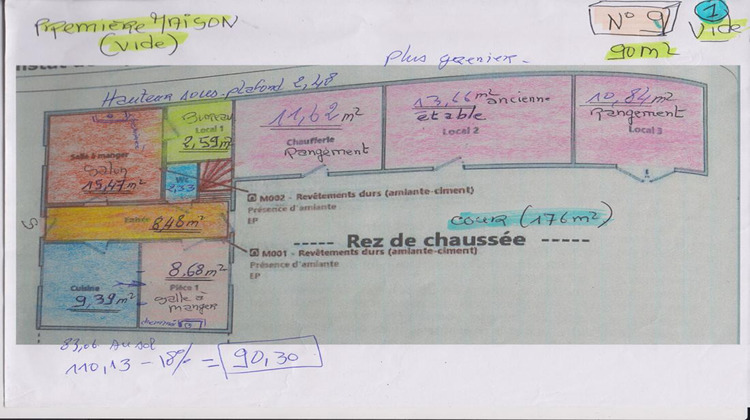 PREMIÈRE MAISON
(vide)
N° 9
1
Vide
90m²
Plus grenier.
Hauteur sous-plafond 2,48
Bureau
Local 1
2,59m²
11,62 m²
Chaufferie
Rangement
13,66 m² ancienne
étable
Local 2
10,84 m²
Rangement
Local 3
Salle à manger
Salon
15,47m²
WC
M002 - Revêtements durs (amiante-ciment)
Présence d'amiante
EP
Entrée
8,48m²
cour (176m²)
----- Rez de chaussée -----
M001 - Revêtements durs (amiante-ciment)
Présence d'amiante
EP
8,68m²
Pièce 1
Salle à
manger
cheminée
Cuisine
9,39m²
83,06 Au sol
110,13 - 18% = 90,30